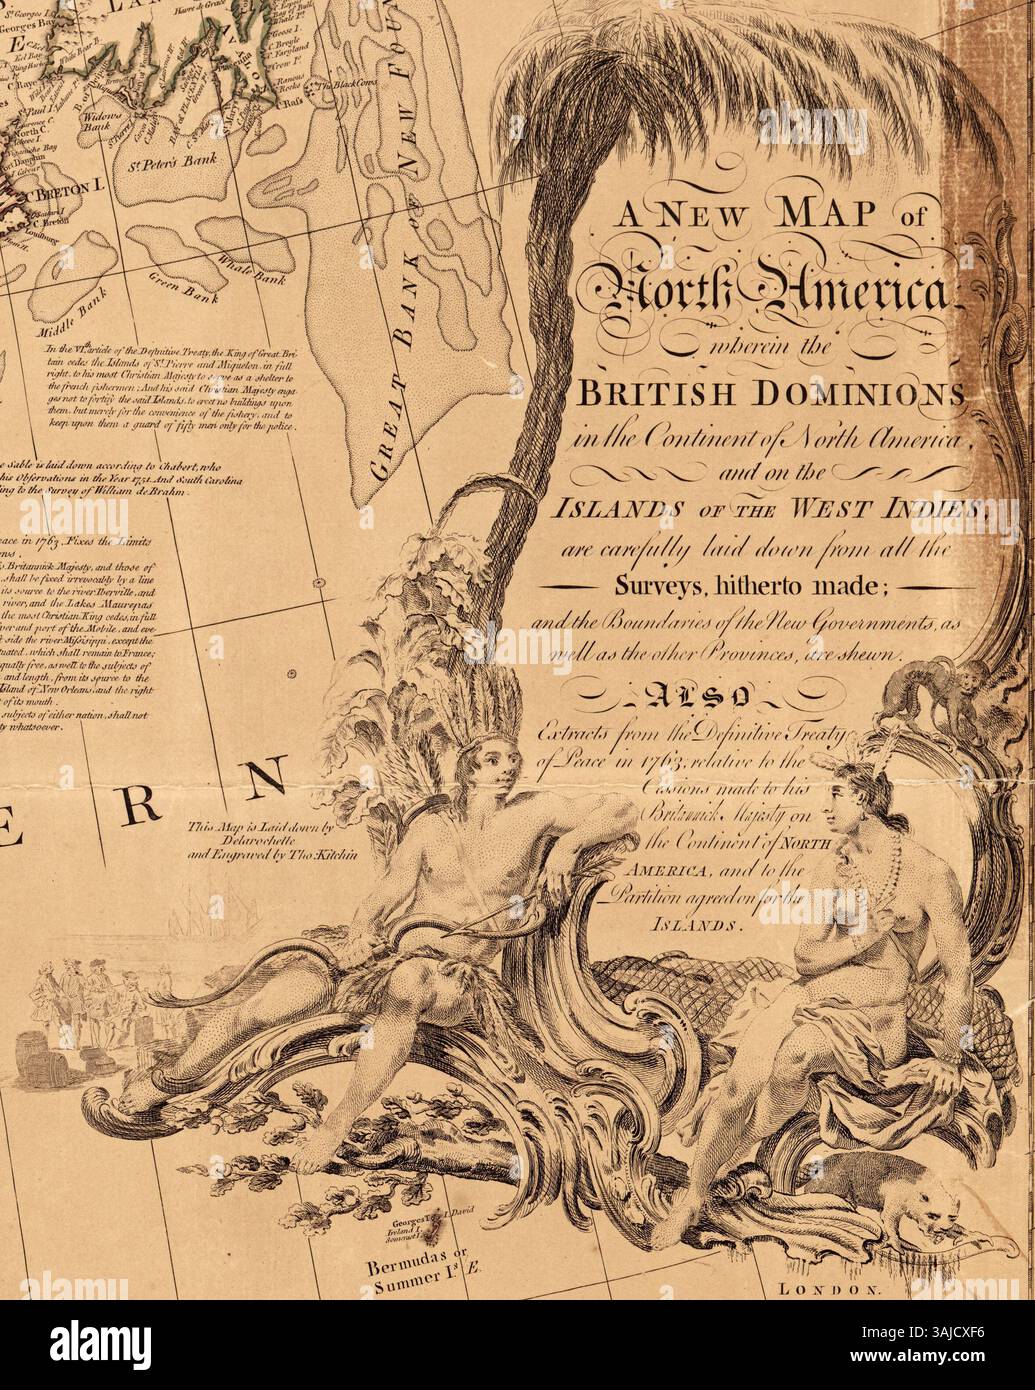 St. Georges I.
Georges Bay
E
L A N
Havre de Grace
Goose I.
C. Broyle
C. Faryland
Crow P.t
Ranous Rocks
C. Rass
The Black Cows
St. Paul I.
North C.
BRETON I.
C. Breton
Louisburg
Widows
Bank
St. Peter's Bank
Middle Bank
Green Bank
Whale Bank
GREAT BANK OF NEW FOUN
In the VI.th article of the Definitive Treaty, the King of Great Bri-
tain cedes the Islands of St. Pierre and Miquelon, in full
right, to his most Christian Majesty to serve as a shelter to
the french fishermen: And his said Christian Majesty enga-
ges not to fortify the said Islands, to erect no buildings upon
them, but merely for the convenience of the fishery, and to
keep upon them a guard of fifty men only for the police.
e Sable is laid down according to Chabert, who
his Observations in the Year 1751. And South Carolina
ing to the Survey of William de Brahm.
eace in 1763. Fixes the Limits
ons.
s Britannick Majesty, and those of
, shall be fixed irrevocably by a line
its source to the river Iberville, and
river, and the Lakes Maurepas
the most Christian King cedes, in full
iver and port of the Mobile, and eve-
t side the river Missisipi, except the
tuated, which shall remain to France;
qually free, as well to the subjects of
and length, from its source to the
Island of New Orleans, and the right
of its mouth.
subjects of either nation, shall not
ty whatsoever.
E R N
This Map is Laid down by
Delarochette
and Engraved by Tho: Kitchin
A NEW MAP of
North America
wherein the
BRITISH DOMINIONS
in the Continent of North America,
and on the
ISLANDS OF THE WEST INDIES,
are carefully laid down from all the
Surveys, hitherto made;
and the Boundaries of the New Governments, as
well as the other Provinces, are shewn.
ALSO
Extracts from the Definitive Treaty
of Peace in 1763, relative to the
Cessions made to his
Britannick Majesty on
the Continent of NORTH
AMERICA, and to the
Partition agreed on for the
ISLANDS.
Georges I. I. David
Ireland I.
Somerset I.
Bermudas or
Summer I.s E.
LONDON.
alamy
Image ID: 2AJCXF6
www.alamy.com